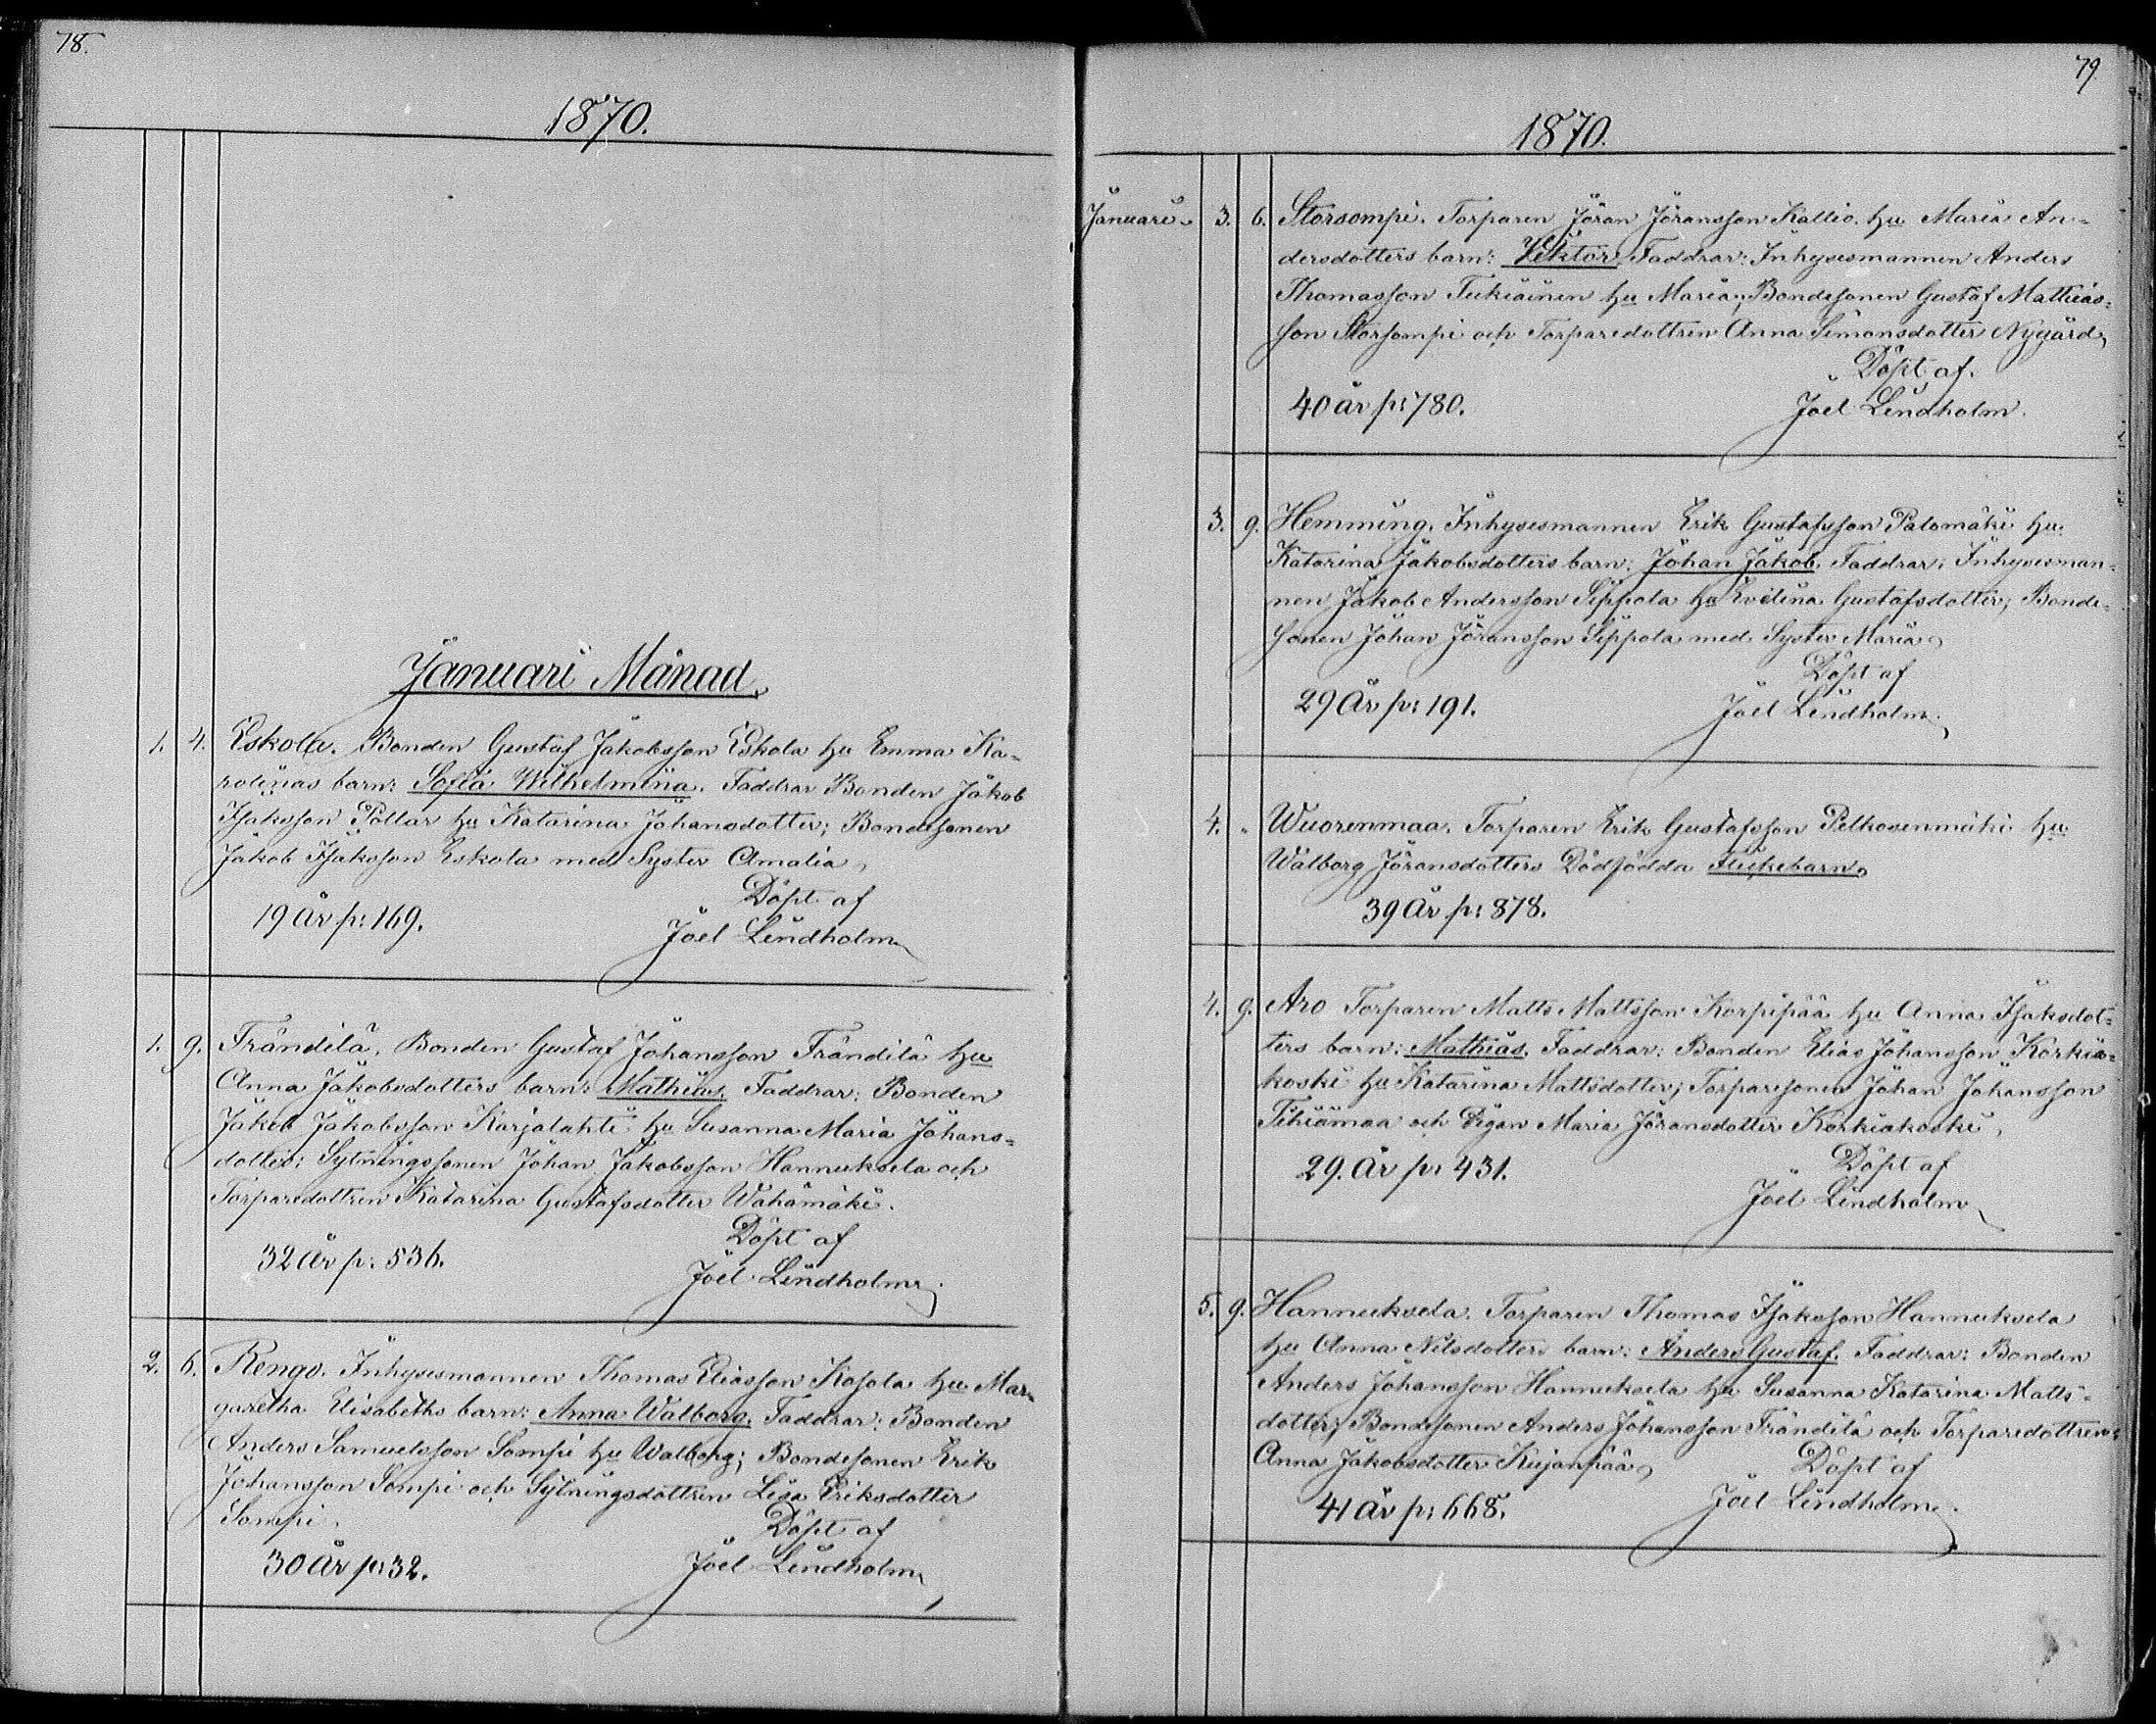 78.
1870.
Januari Månad.
1. 4. Eskola. Bonden Gustaf Jakobsson Eskola hu Emma Ka-
rolinas barn: Sofia Wilhelmina. Faddrar Bonden Jakob
Isaksson Pollar hu Katarina Johansdotter; Bondesonen
Jakob Isaksson Eskola med Syster Amalia,
Döpt af
19 år p: 169.
Joel Lindholm
1. 9. Frändilä. Bonden Gustaf Johansson Frändilä hu
Anna Jakobsdotters barn: Mathias. Faddrar: Bonden
Jakob Jakobsson Karjalahti hu Susanna Maria Johans=
dotter; Sytningssonen Johan Jakobsson Hannuksela och
Torparedottren Katarina Gustafsdotter Wähämäki.
Döpt af
32 år p: 536.
Joel Lindholm
2. 6. Rengo. Inhysesmannen Thomas Eliasson Kasola hu Mar-
garetha Elisabeths barn: Anna Walborg. Faddrar: Bonden
Anders Samuelsson Sompi hu Walborg; Bondesonen Erik
Johansson Sompi och Sytningsdottren Lisa Eriksdotter
Sompi.
Döpt af
30 år p: 32.
Joel Lindholm
79
1870.
Januari. 3. 6. Storsompi. Torparen Jöran Jöransson Kallio. hu Maria An-
dersdotters barn: Viktor. Faddrar: Inhysesmannen Anders
Thomasson Tukiainen hu Maria; Bondesonen Gustaf Mathias=
son Storsompi och Torparedottren Anna Simonsdotter Nygård,
Döpt af.
40 år p: 780.
Joel Lindholm.
3. 9. Hemming. Inhysesmannen Erik Gustafsson Palomäki hu
Katarina Jakobsdotters barn: Johan Jakob. Faddrar: Inhysesman-
nen Jakob Andersson Sippola hu Evelina Gustafsdotter; Bonde-
sonen Johan Jöransson Sippola med Syster Maria
Döpt af
29 År p: 191.
Joel Lindholm.
4. " Wuorenmaa. Torparen Erik Gustafsson Pelkosenmäki hu
Walborg Jöransdotters Dödfödda Flickebarn.
39 År p: 878.
4. 9. Aro Torparen Matts Mattsson Korpipää hu Anna Isaksdot=
ters barn: Mathias. Faddrar: Bonden Elias Johansson Korkia=
koski hu Katarina Mattsdotter; Torparesonen Johan Johansson
Tihiämaa och Pigan Maria Jöransdotter Korkiakoski,
Döpt af
29. År p: 431.
Joel Lindholm
5. 9. Hannuksela. Torparen Thomas Isaksson Hannuksela
hu Anna Nilsdotters barn: Anders Gustaf. Faddrar: Bonden
Anders Johansson Hannuksela hu Susanna Katarina Matts-
dotter; Bondesonen Anders Johansson Frändilä och Torparedottren
Anna Jakobsdotter Kujanpää
Döpt af
41 År p: 668.
Joel Lindholm.